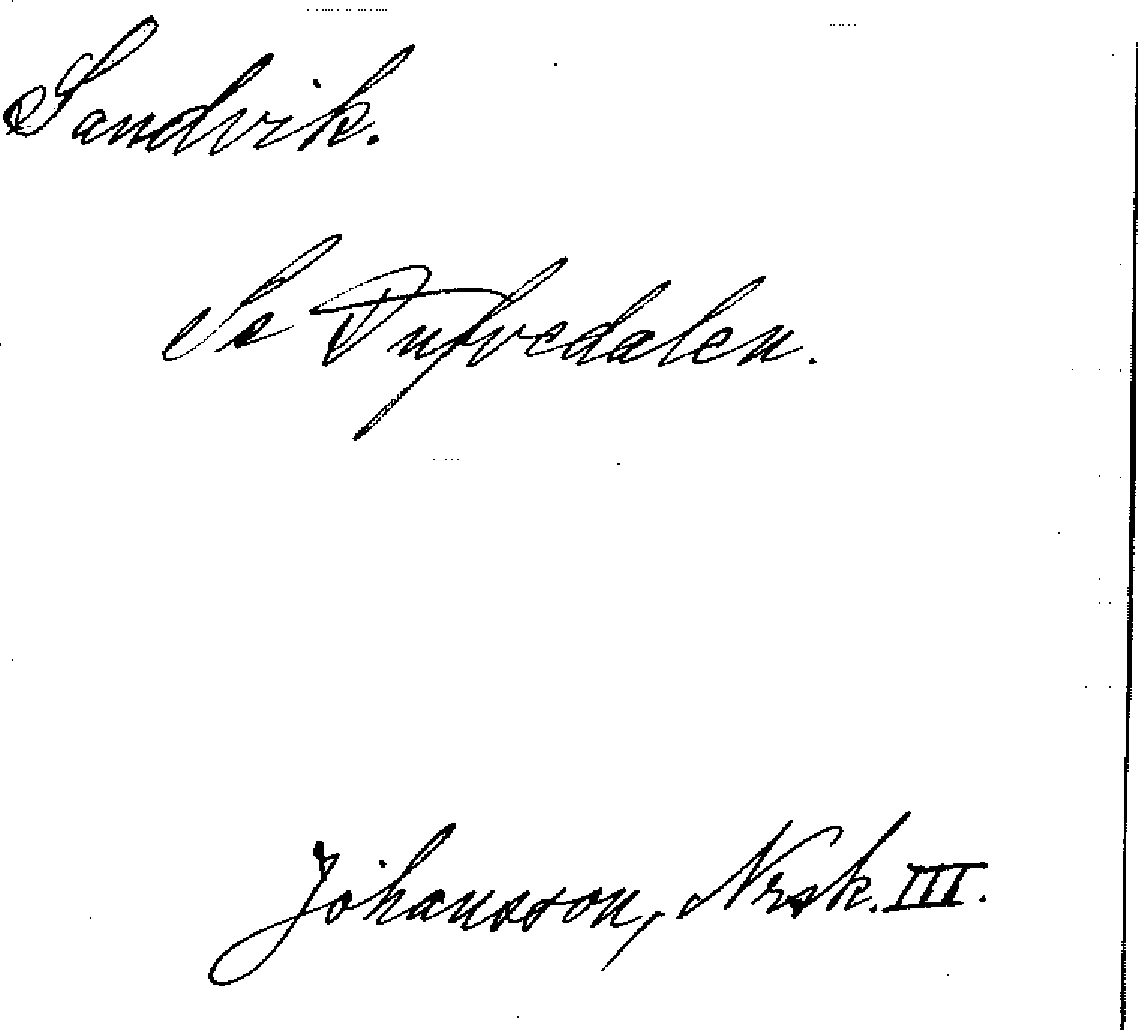 Sandvik.
Se Dufvedalen.
Johansson, Nrsk. III.